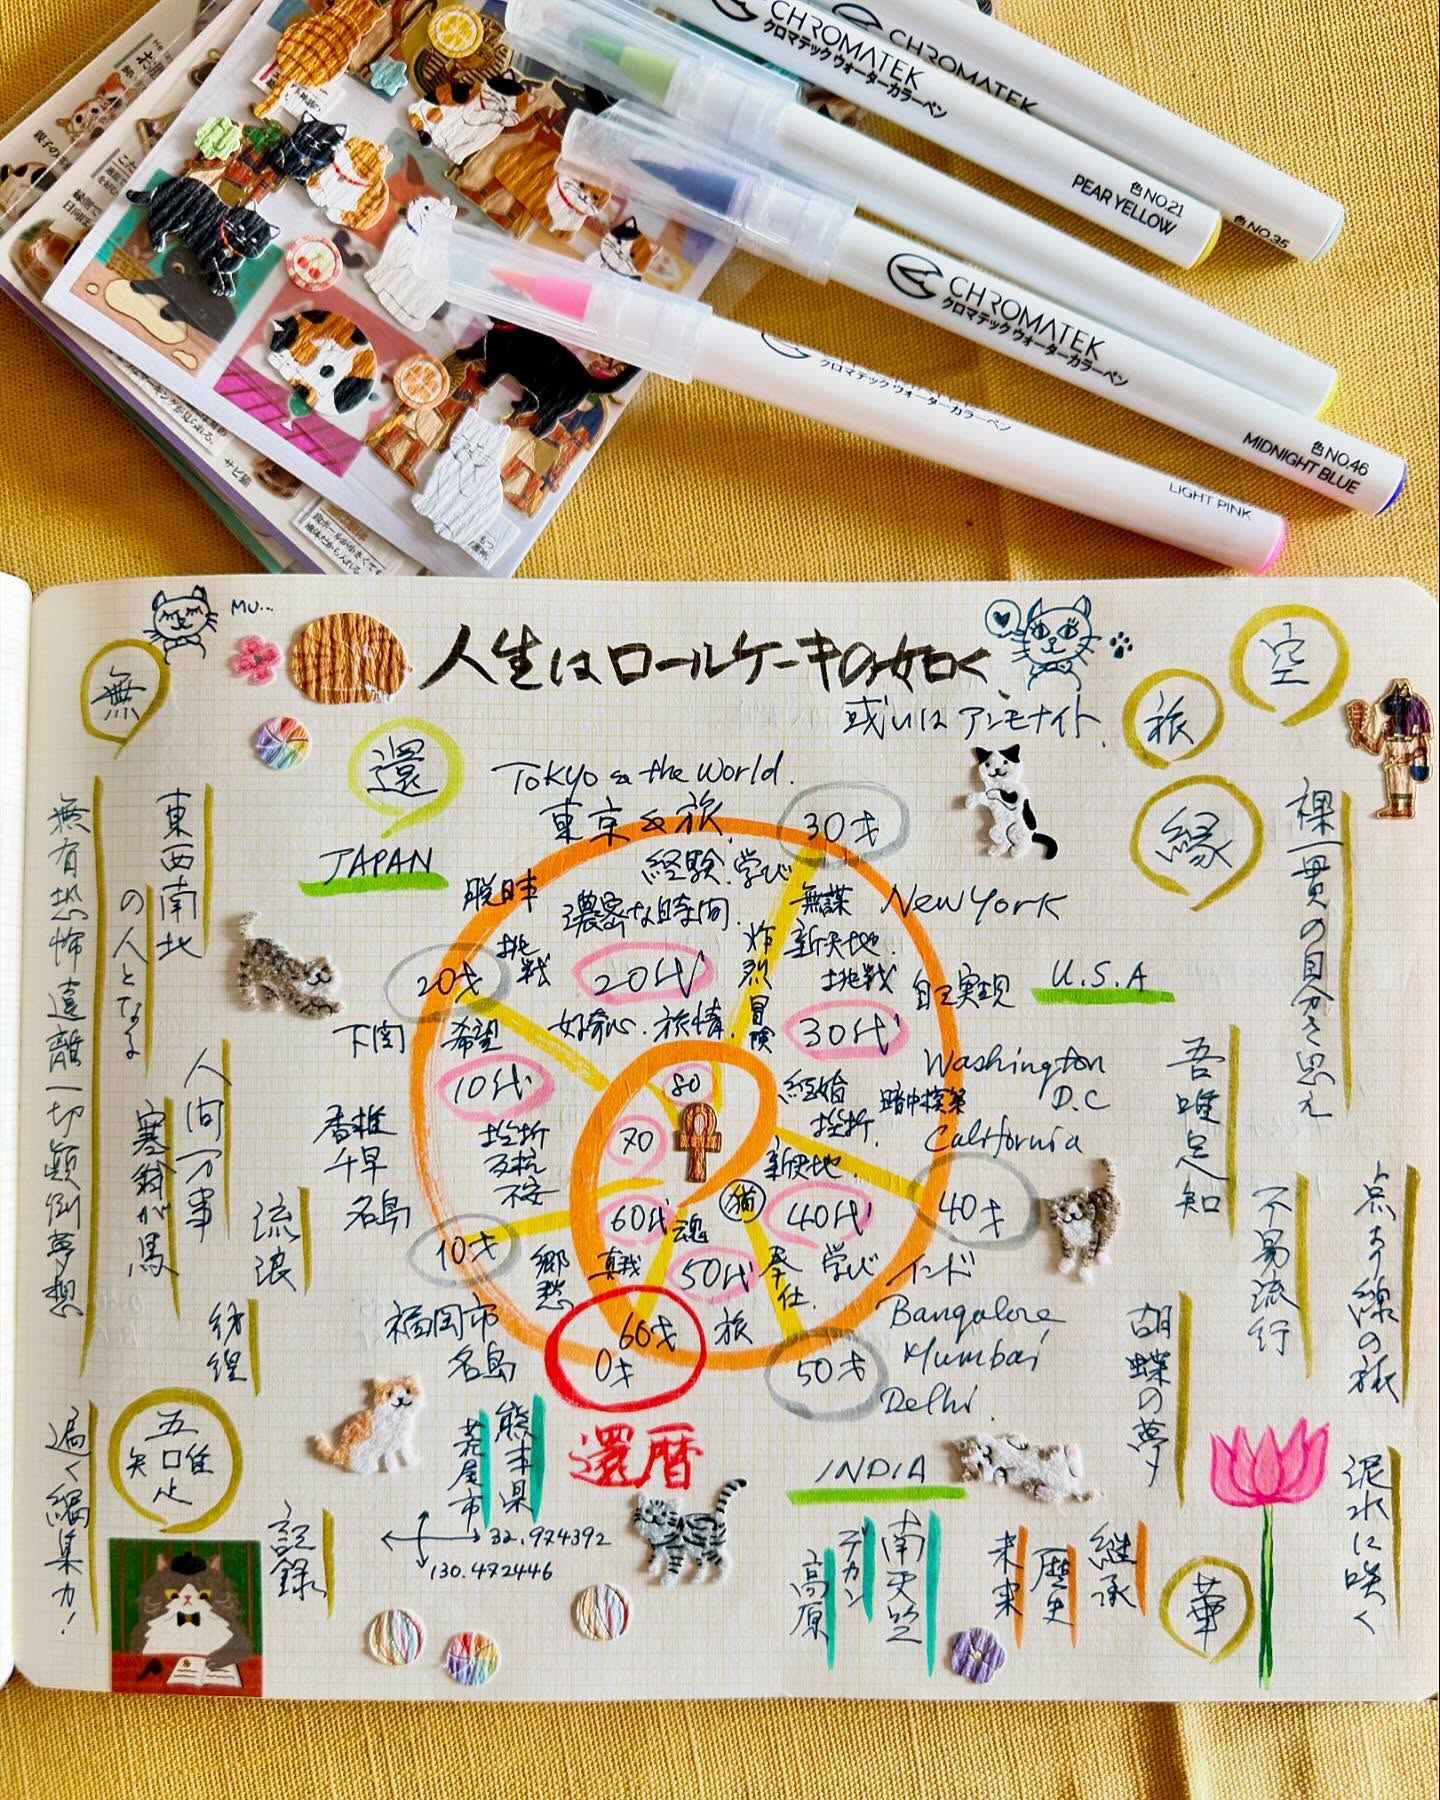 CHROMATEK
クロマテック ウォーターカラーペン
CHROMATEK
クロマテック ウォーターカラーペン
色 NO.21
PEAR YELLOW
色 NO.35
CHROMATEK
クロマテック ウォーターカラーペン
色 NO.46
MIDNIGHT BLUE
クロマテック ウォーターカラーペン
LIGHT PINK
サビ猫
MU...
人生はロールケーキの如く、
或いはアンモナイト、
無
還
空
旅
縁
Tokyo & the World.
東京 & 旅
JAPAN
脱日本
経験、学び
濃密な時間
20代
好奇心・旅情
挑戦
20才
希望
下関
10代
香椎
千早
名島
挫折
反抗
不安
10才
郷愁
福岡市
名島
30才
無謀
新天地
挑戦
炸烈
冒険
New York
自己実現
U.S.A
30代
結婚
挫折
新天地
暗中模索
Washington
D.C
California
40才
40代
学び
奉仕
インド
Bangalore
Mumbai
Delhi
50才
50代
旅
猫
魂
60代
真我
70
80
60才
0才
還暦
熊本県
荒尾市
32.974392
130.472446
INDIA
南天竺
デカン
高原
継承
歴史
未来
華
裸一貫の自分を思え
吾唯足知
不易流行
点より線の旅
胡蝶の夢
泥水に咲く
東西南北
の人となる
無有恐怖遠離一切顛倒夢想
人間万事
塞翁が馬
流浪
彷徨
五唯止矢
遍く編集力!
記録